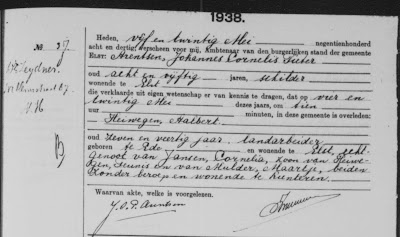 1938.
No. 37
Heden, vijf en twintig Mei negentienhonderd
acht en dertig, verscheen voor mij, Ambtenaar van den burgerlijken stand der gemeente
ELST: Arentsen, Johannes Cornelis Pieter
oud acht en vijftig jaren, schilder
wonende te Elst
die verklaarde uit eigen wetenschap er van kennis te dragen, dat op vier en
twintig Mei dezes jaars, om tien
ure minuten, in deze gemeente is overleden:
Heiwegen, Halbert
oud zeven en veertig jaar, landarbeider
geboren te Ede en wonende te Elst, echt-
genoot van Jansen, Cornelia, zoon van Heiwe-
gen, Teunis en van Mulder, Maartje, beiden
zonder beroep en wonende te Renteren.
Waarvan akte, welke is voorgelezen.